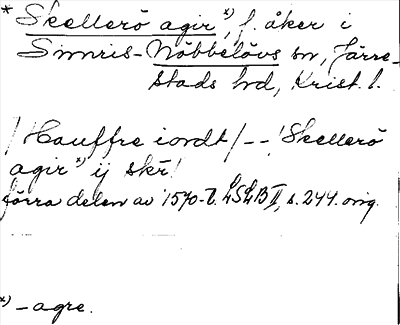 * Skellerö agir *), f. åker i
Simris-Nöbbelövs sn, Järre-
stads hd, Krist. l.
/Hauffre iordt/ -- ! Skellerö
agir *) ij skr̄ !
förra delen av 1570-t. LSLB II, s. 244. orig.
*) - agre.